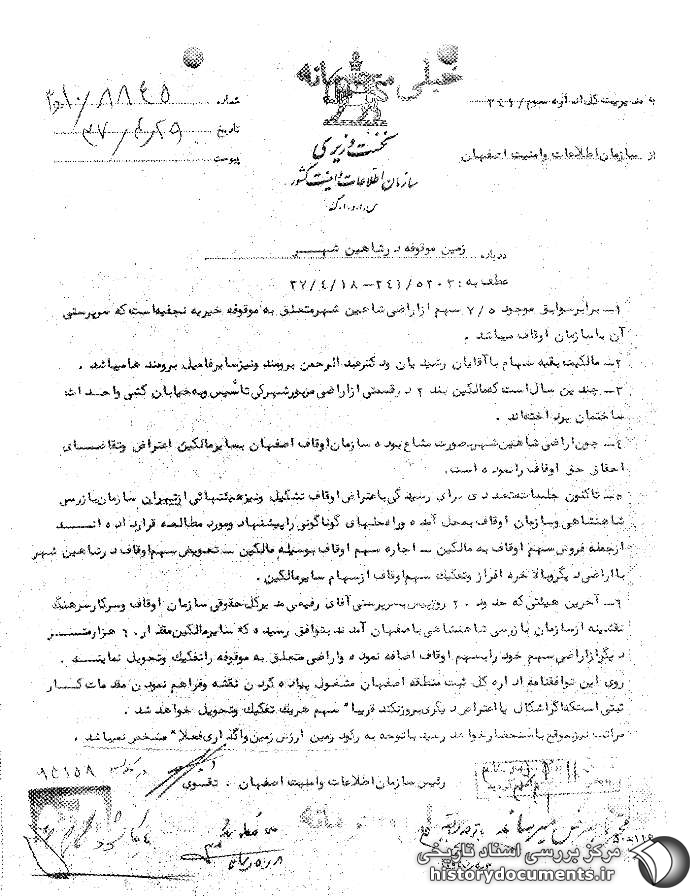 خیلی محرمانه
به مدیریت کل اداره سوم / ۳۴۱
از سازمان اطلاعات و امنیت اصفهان
نخست وزیری
سازمان اطلاعات و امنیت کشور
س.ا.و.ا.ک
شماره
تاریخ
پیوست
درباره زمین موقوفه در شاهین شهر
عطف به : ۳۴۱/۵۲۰۳ – ۳۷/۴/۱۸
۱– برابر سوابق موجود ۷/۵ سهم از اراضی شاهین شهر متعلق به موقوفه خیریه نجفیه است که سرپرستی
آن با سازمان اوقاف میباشد .
۲– مالکیت بقیه سهام با آقایان رشیدیان و دکتر عبدالرحمن برومند و نیز سایر فامیل برومندها میباشد .
۳– چندین سال است که مالکین بند ۲ در قسمتی از اراضی مزبور شهرکی تاسیس و به خیابان کشی و احداث
ساختمان پرداخته‌اند .
۴– چون اراضی شاهین شهر بصورت مشاع بوده سازمان اوقاف اصفهان بسایر مالکین اعتراض و تقاضای
احقاق حق اوقاف را نموده است .
۵– تاکنون جلسات متعددی برای رسیدگی با اعتراض اوقاف تشکیل و نیز هیئتهائی از تهران سازمان بازرسی
شاهنشاهی و سازمان اوقاف بمحل آمده و راه‌حلهای گوناگونی را پیشنهاد و مورد مطالعه قرار داده‌اند
ازجمله فروش سهم اوقاف به مالکین – اجاره سهم اوقاف بوسیله مالکین – تعویض سهم اوقاف در شاهین شهر
با اراضی دیگر و بالاخره افراز و تفکیک سهم اوقاف از سهام سایر مالکین .
۶– آخرین هیئتی که حدود ۲۰ روز پیش بسرپرستی آقای رفیعی مدیرکل حقوقی سازمان اوقاف و سرکار سرهنگ
از سازمان بازرسی شاهنشاهی باصفهان آمدند بتوافق رسیده که سایر مالکین مقدار ۶۰ هزار متر
دیگر از اراضی سهم خود را بسهم اوقاف اضافه نموده و اراضی متعلق به موقوفه را تفکیک و تحویل نمایند .
روی این توافقنامه اداره کل ثبت منطقه اصفهان مشغول پیاده کردن نقشه و فراهم نمودن مقدمات کار
ثبتی است که اگر اشکال یا اعتراض دیگری بروز نکند قریبا" سهم هریک تفکیک و تحویل خواهد شد .
مراتب بموقع باستحضار خواهد رسید با توجه به رکود زمین ارزش زمین واگذاری فعلا" مشخص نمیباشد .
رئیس سازمان اطلاعات و امنیت اصفهان . تقوی
۹۲۱۵۸
خیلی محرمانه
مرکز بررسی اسناد تاریخی
historydocuments.ir